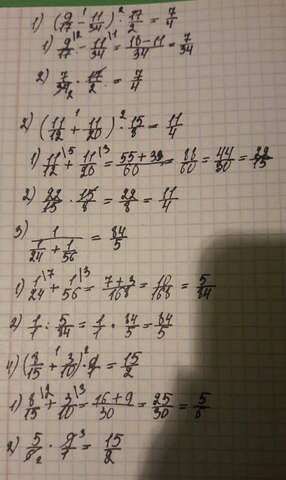 1) (9/17 - 11/34) · 17/2 = 7/4
1) 9/17 - 11/34 = 18-11/34 = 7/34
2) 7/34 · 17/2 = 7/4
2) (11/12 + 11/20) · 15/8 = 11/4
1) 11/12 + 11/20 = 55+33/60 = 88/60 = 44/30 = 22/15
2) 22/15 · 15/8 = 22/8 = 11/4
3) 1/(1/24 + 1/56) = 84/5
1) 1/24 + 1/56 = 7+3/168 = 10/168 = 5/84
2) 1/1 : 5/84 = 1/1 · 84/5 = 84/5
4) (8/15 + 3/10) · 9/1 = 15/2
1) 8/15 + 3/10 = 16+9/30 = 25/30 = 5/6
2) 5/6 · 9/1 = 15/2